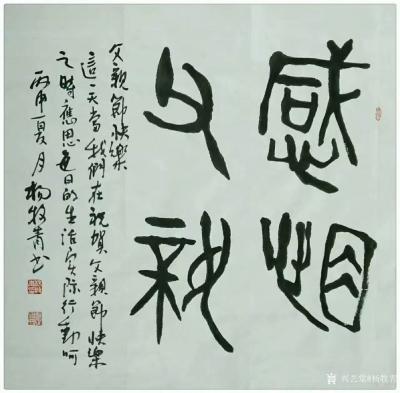 感想
父親
父親節快樂
這一天當我們在祝賀父親節快樂
之時應思每日的生活實際行動呵
丙申夏月楊牧青書
兴艺堂@杨牧青